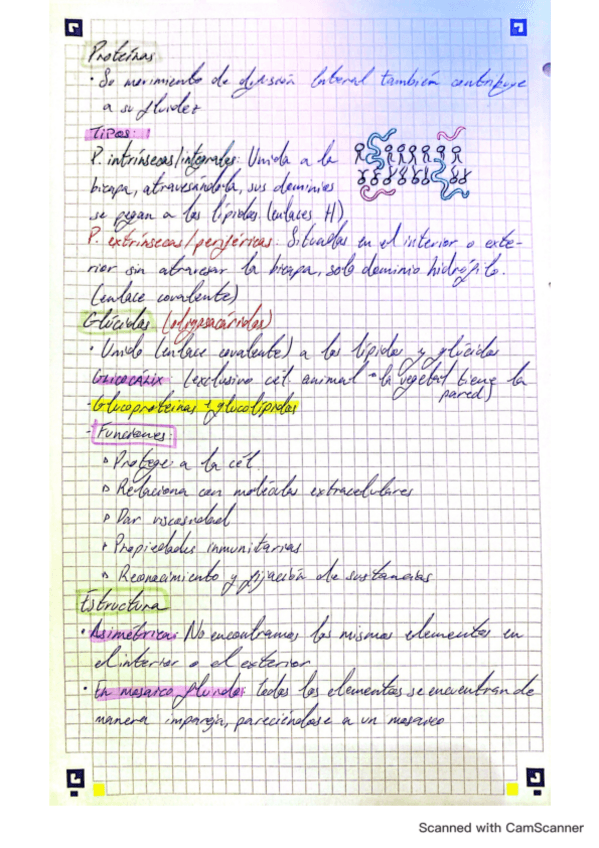 Proteínas
· Su movimiento de difusión lateral también contribuye
a su fluidez
Tipos:
P. intrínsecas/integrales: Unida a la
bicapa, atravesándola, sus dominios
se pegan a los lípidos (enlaces H)
P. extrínsecas/periféricas: Situadas en el interior o exte-
rior sin atravesar la bicapa, solo dominio hidrófilo.
(enlace covalente)
Glúcidos (oligosacáridos)
· Unido (enlace covalente) a los lípidos y glúcidos
Glicocálix (exclusivo cél. animal la vegetal tiene la
pared)
- Glucoproteínas + glucolípidos
- Funciones:
▹ Protege a la cél.
▹ Relaciona con moléculas extracelulares
▹ Dar viscosidad
▹ Propiedades inmunitarias
▹ Reconocimiento y fijación de sustancias
Estructura
· Asimétrica: No encontramos los mismos elementos en
el interior o el exterior
· En mosaico fluido: todos los elementos se encuentran de
manera impareja, pareciéndose a un mosaico
Scanned with CamScanner